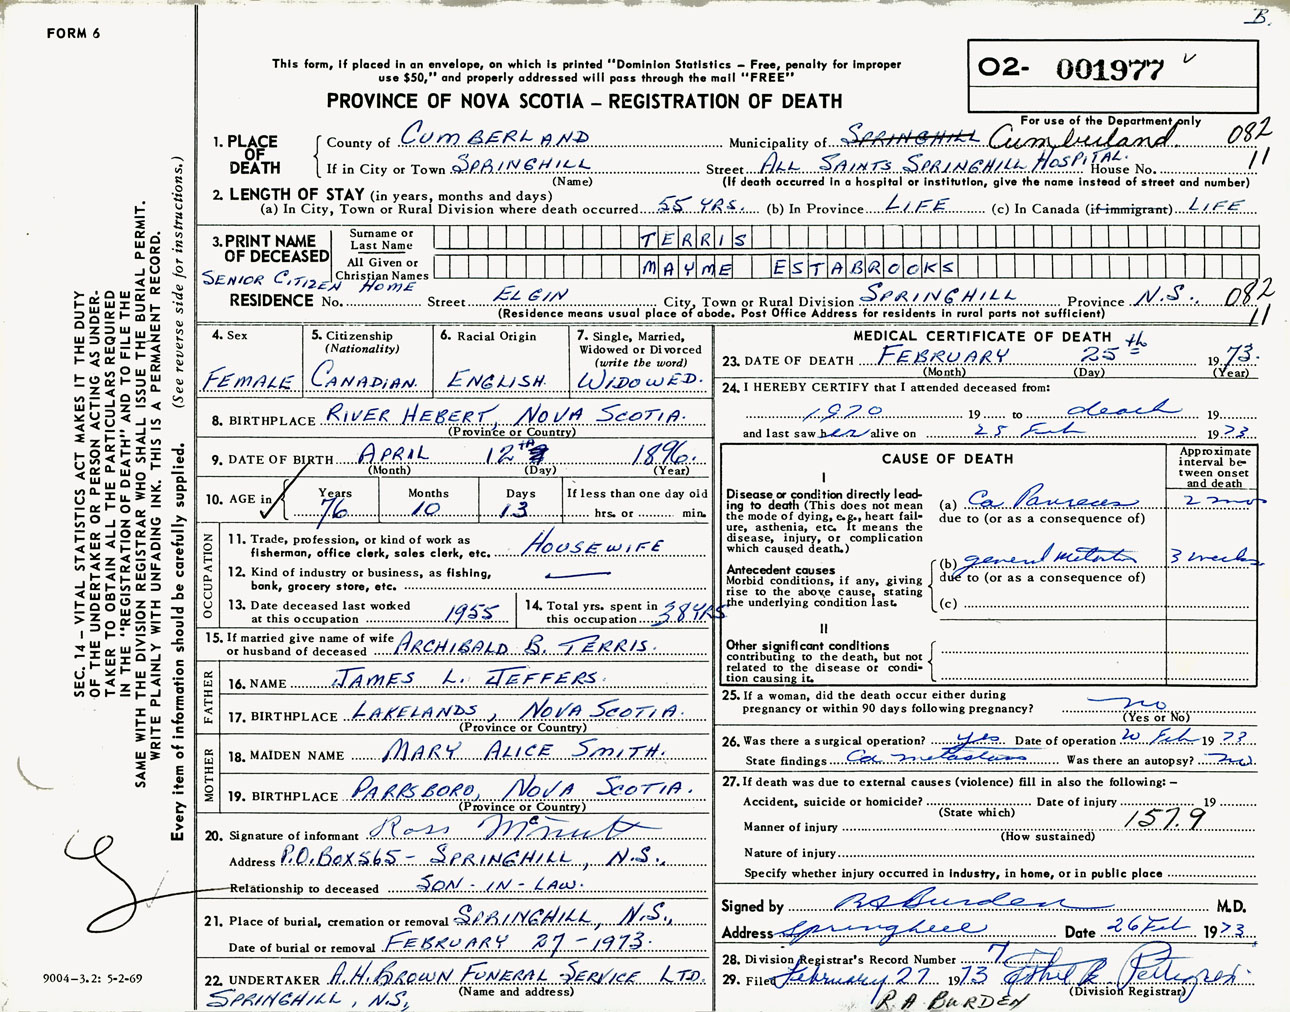 B.
FORM 6
This form, if placed in an envelope, on which is printed "Dominion Statistics – Free, penalty for improper
use $50," and properly addressed will pass through the mail "FREE"
O2- 001977
PROVINCE OF NOVA SCOTIA – REGISTRATION OF DEATH
For use of the Department only
1. PLACE OF DEATH
County of CUMBERLAND Municipality of SPRINGHILL Cumberland 082
If in City or Town SPRINGHILL Street ALL SAINTS SPRINGHILL HOSPITAL. House No. 11
(Name) (If death occurred in a hospital or institution, give the name instead of street and number)
2. LENGTH OF STAY (in years, months and days)
(a) In City, Town or Rural Division where death occurred 55 YRS. (b) In Province LIFE (c) In Canada (if immigrant) LIFE
3. PRINT NAME OF DECEASED
Surname or Last Name TERRIS
All Given or Christian Names MAYME ESTABROOKS
SENIOR CITIZEN HOME
RESIDENCE No. Street ELGIN City, Town or Rural Division SPRINGHILL Province N.S. 082
(Residence means usual place of abode. Post Office Address for residents in rural parts not sufficient) 11
4. Sex
FEMALE
5. Citizenship
(Nationality)
CANADIAN
6. Racial Origin
ENGLISH
7. Single, Married,
Widowed or Divorced
(write the word)
WIDOWED.
8. BIRTHPLACE RIVER HEBERT, NOVA SCOTIA.
(Province or Country)
9. DATE OF BIRTH APRIL 12th 1896.
(Month) (Day) (Year)
10. AGE in Years Months Days If less than one day old
76 10 13 hrs. or min.
OCCUPATION
11. Trade, profession, or kind of work as
fisherman, office clerk, sales clerk, etc. HOUSEWIFE
12. Kind of industry or business, as fishing,
bank, grocery store, etc.
13. Date deceased last worked
at this occupation 1955
14. Total yrs. spent in
this occupation 38 YRS
15. If married give name of wife
or husband of deceased ARCHIBALD B. TERRIS.
FATHER
16. NAME JAMES L. JEFFERS.
17. BIRTHPLACE LAKELANDS, NOVA SCOTIA.
(Province or Country)
MOTHER
18. MAIDEN NAME MARY ALICE SMITH.
19. BIRTHPLACE PARRSBORO, NOVA SCOTIA.
(Province or Country)
20. Signature of informant Ross McNutt
Address P.O. BOX 565 - SPRINGHILL, N.S.,
Relationship to deceased SON-IN-LAW.
21. Place of burial, cremation or removal SPRINGHILL, N.S.,
Date of burial or removal FEBRUARY 27-1973.
22. UNDERTAKER A.H. BROWN FUNERAL SERVICE LTD.
(Name and address)
SPRINGHILL, N.S,
MEDICAL CERTIFICATE OF DEATH
23. DATE OF DEATH FEBRUARY 25th 1973.
(Month) (Day) (Year)
24. I HEREBY CERTIFY that I attended deceased from:
1970 19 to death 19
and last saw her alive on 25 Feb 1973
CAUSE OF DEATH
Approximate interval between onset and death
I
Disease or condition directly lead-
ing to death (This does not mean
the mode of dying, e.g., heart fail-
ure, asthenia, etc. It means the
disease, injury, or complication
which caused death.)
(a) Ca Pancreas 2 mos
due to (or as a consequence of)
Antecedent causes
Morbid conditions, if any, giving
rise to the above cause, stating
the underlying condition last.
(b) general 3 weeks
due to (or as a consequence of)
(c)
II
Other significant conditions
contributing to the death, but not
related to the disease or condi-
tion causing it.
25. If a woman, did the death occur either during
pregnancy or within 90 days following pregnancy? no
(Yes or No)
26. Was there a surgical operation? yes Date of operation 20 Feb 1973
State findings Ca metastases Was there an autopsy? no.
27. If death was due to external causes (violence) fill in also the following: –
Accident, suicide or homicide? Date of injury 19
(State which)
Manner of injury 157.9
(How sustained)
Nature of injury
Specify whether injury occurred in industry, in home, or in public place
Signed by RA Burden M.D.
Address Springhill Date 26 Feb 1973
28. Division Registrar's Record Number 7
29. Filed February 27 1973 Ethel
(Division Registrar)
R.A BURDEN
SEC. 14 – VITAL STATISTICS ACT MAKES IT THE DUTY
OF THE UNDERTAKER OR PERSON ACTING AS UNDER-
TAKER TO OBTAIN ALL THE PARTICULARS REQUIRED
IN THE "REGISTRATION OF DEATH" AND TO FILE THE
SAME WITH THE DIVISION REGISTRAR WHO SHALL ISSUE THE BURIAL PERMIT.
WRITE PLAINLY WITH UNFADING INK. THIS IS A PERMANENT RECORD.
Every item of information should be carefully supplied. (See reverse side for instructions.)
9004–3.2: 5-2-69